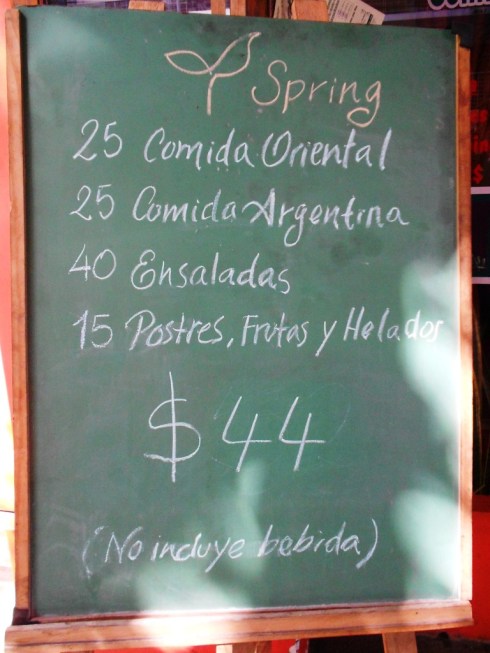 Spring
25 Comida Oriental
25 Comida Argentina
40 Ensaladas
15 Postres, Frutas y Helados
$ 44
(No incluye bebida)